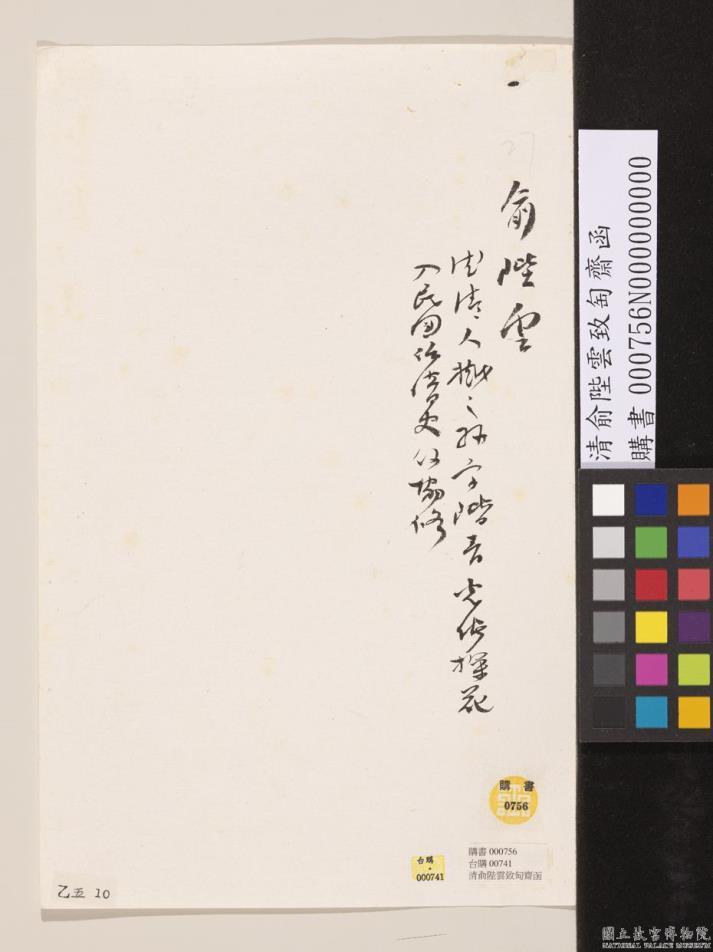 27
俞陛雲
德清人樾之孫字階青光緒探花
入民國任清史館協修
購書
0756
台購
000741
購書 000756
台購 00741
清俞陛雲致匋齋函
乙五 10
清俞陛雲致匋齋函
購書 000756N000000000
國立故宮博物院
NATIONAL PALACE MUSEUM